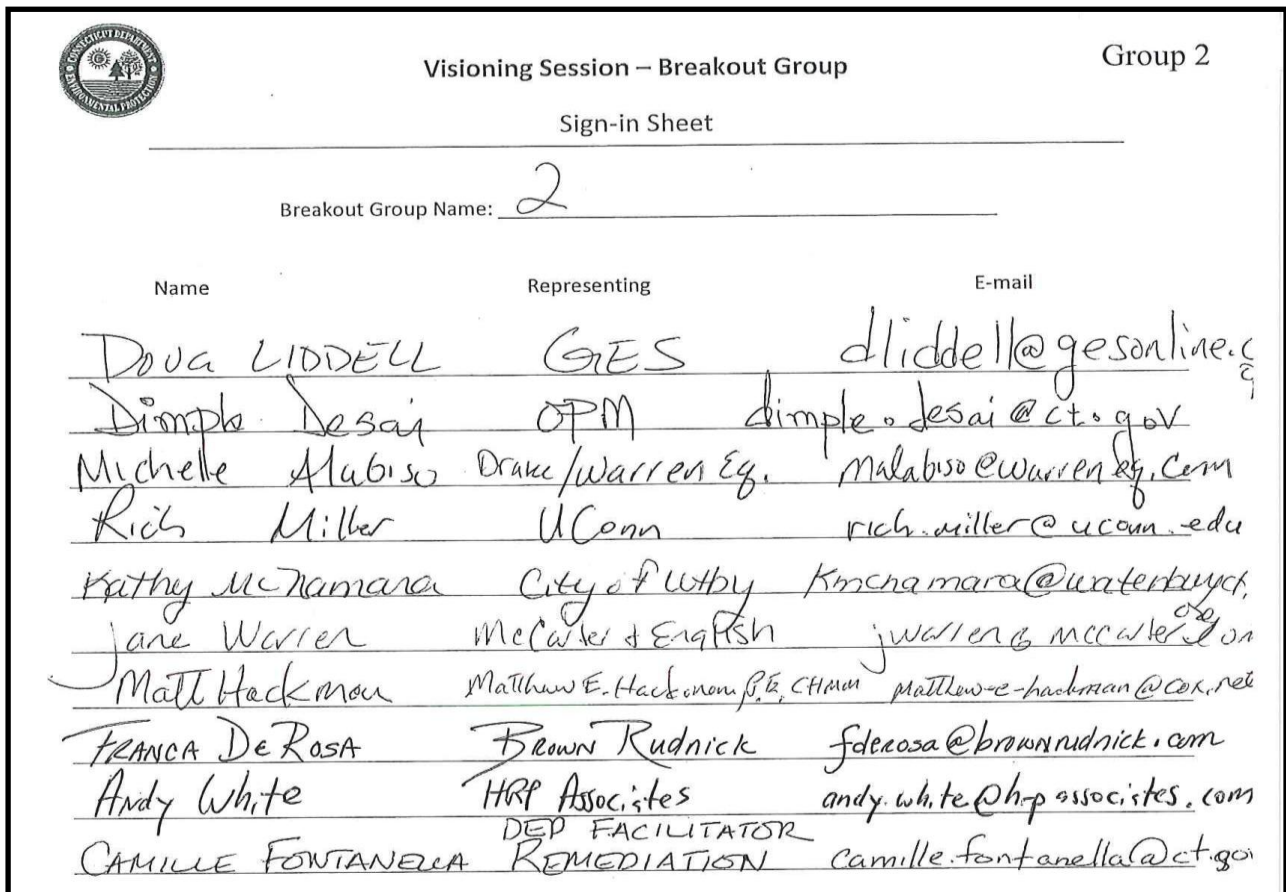 CONNECTICUT DEPARTMENT
ENVIRONMENTAL PROTECTION
Visioning Session – Breakout Group
Group 2
Sign-in Sheet
Breakout Group Name: 2
Name Representing E-mail
DOUG LIDDELL GES dliddell@gesonline.c
Dimple Desai OPM dimple.desai@ct.gov
Michelle Alabiso Drake/Warren Eq. malabiso@warreneq.com
Rich Miller UConn rich.miller@uconn.edu
Kathy McNamara City of Wtby Kmcnamara@waterburyct.
Jane Warren McCarter & English
Matt Hackman Matthew E. Hackman P.E. CHMM matthew-e-hackman@cox.net
FRANCA DeROSA BROWN RUDNICK fderosa@brownrudnick.com
Andy White HRP Associates andy.white@hrpassociates.com
DEP FACILITATOR
CAMILLE FONTANELLA REMEDIATION camille.fontanella@ct.gov